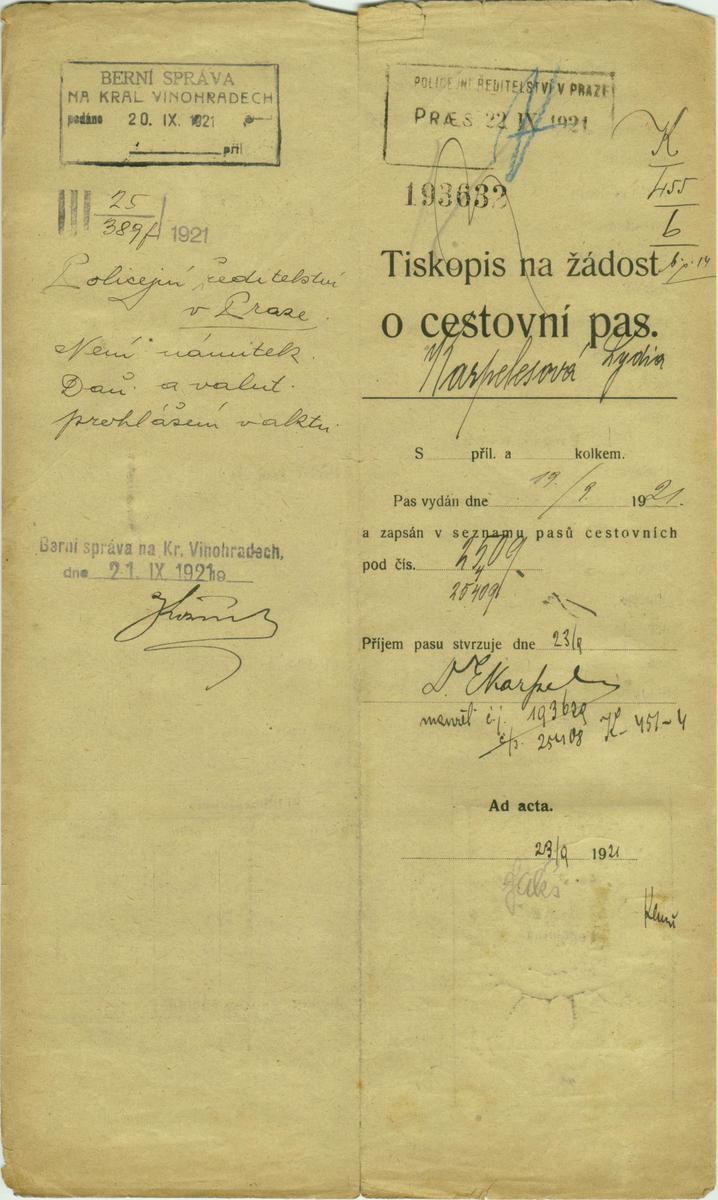 BERNÍ SPRÁVA
NA KRÁL. VINOHRADECH
podáno 20. IX. 1921
příl
III 25
389 / 1921
Policejní ředitelství
v Praze.
Není námitek.
Daň. a valut.
prohlášení v aktu.
Berní správa na Kr. Vinohradech,
dne 21. IX. 1921 19
POLICEJNÍ ŘEDITELSTVÍ V PRAZE
PRÆS 22 IX 1921
193632
K
455
6
Tiskopis na žádost
o cestovní pas.
Karpelesová Lydia
S příl. a kolkem.
Pas vydán dne 19/9 1921.
a zapsán v seznamu pasů cestovních
pod čís.
25409
Příjem pasu stvrzuje dne 23/9
manžel č.j. 193629 K-451-4
č/p. 25408
Ad acta.
23/9 1921